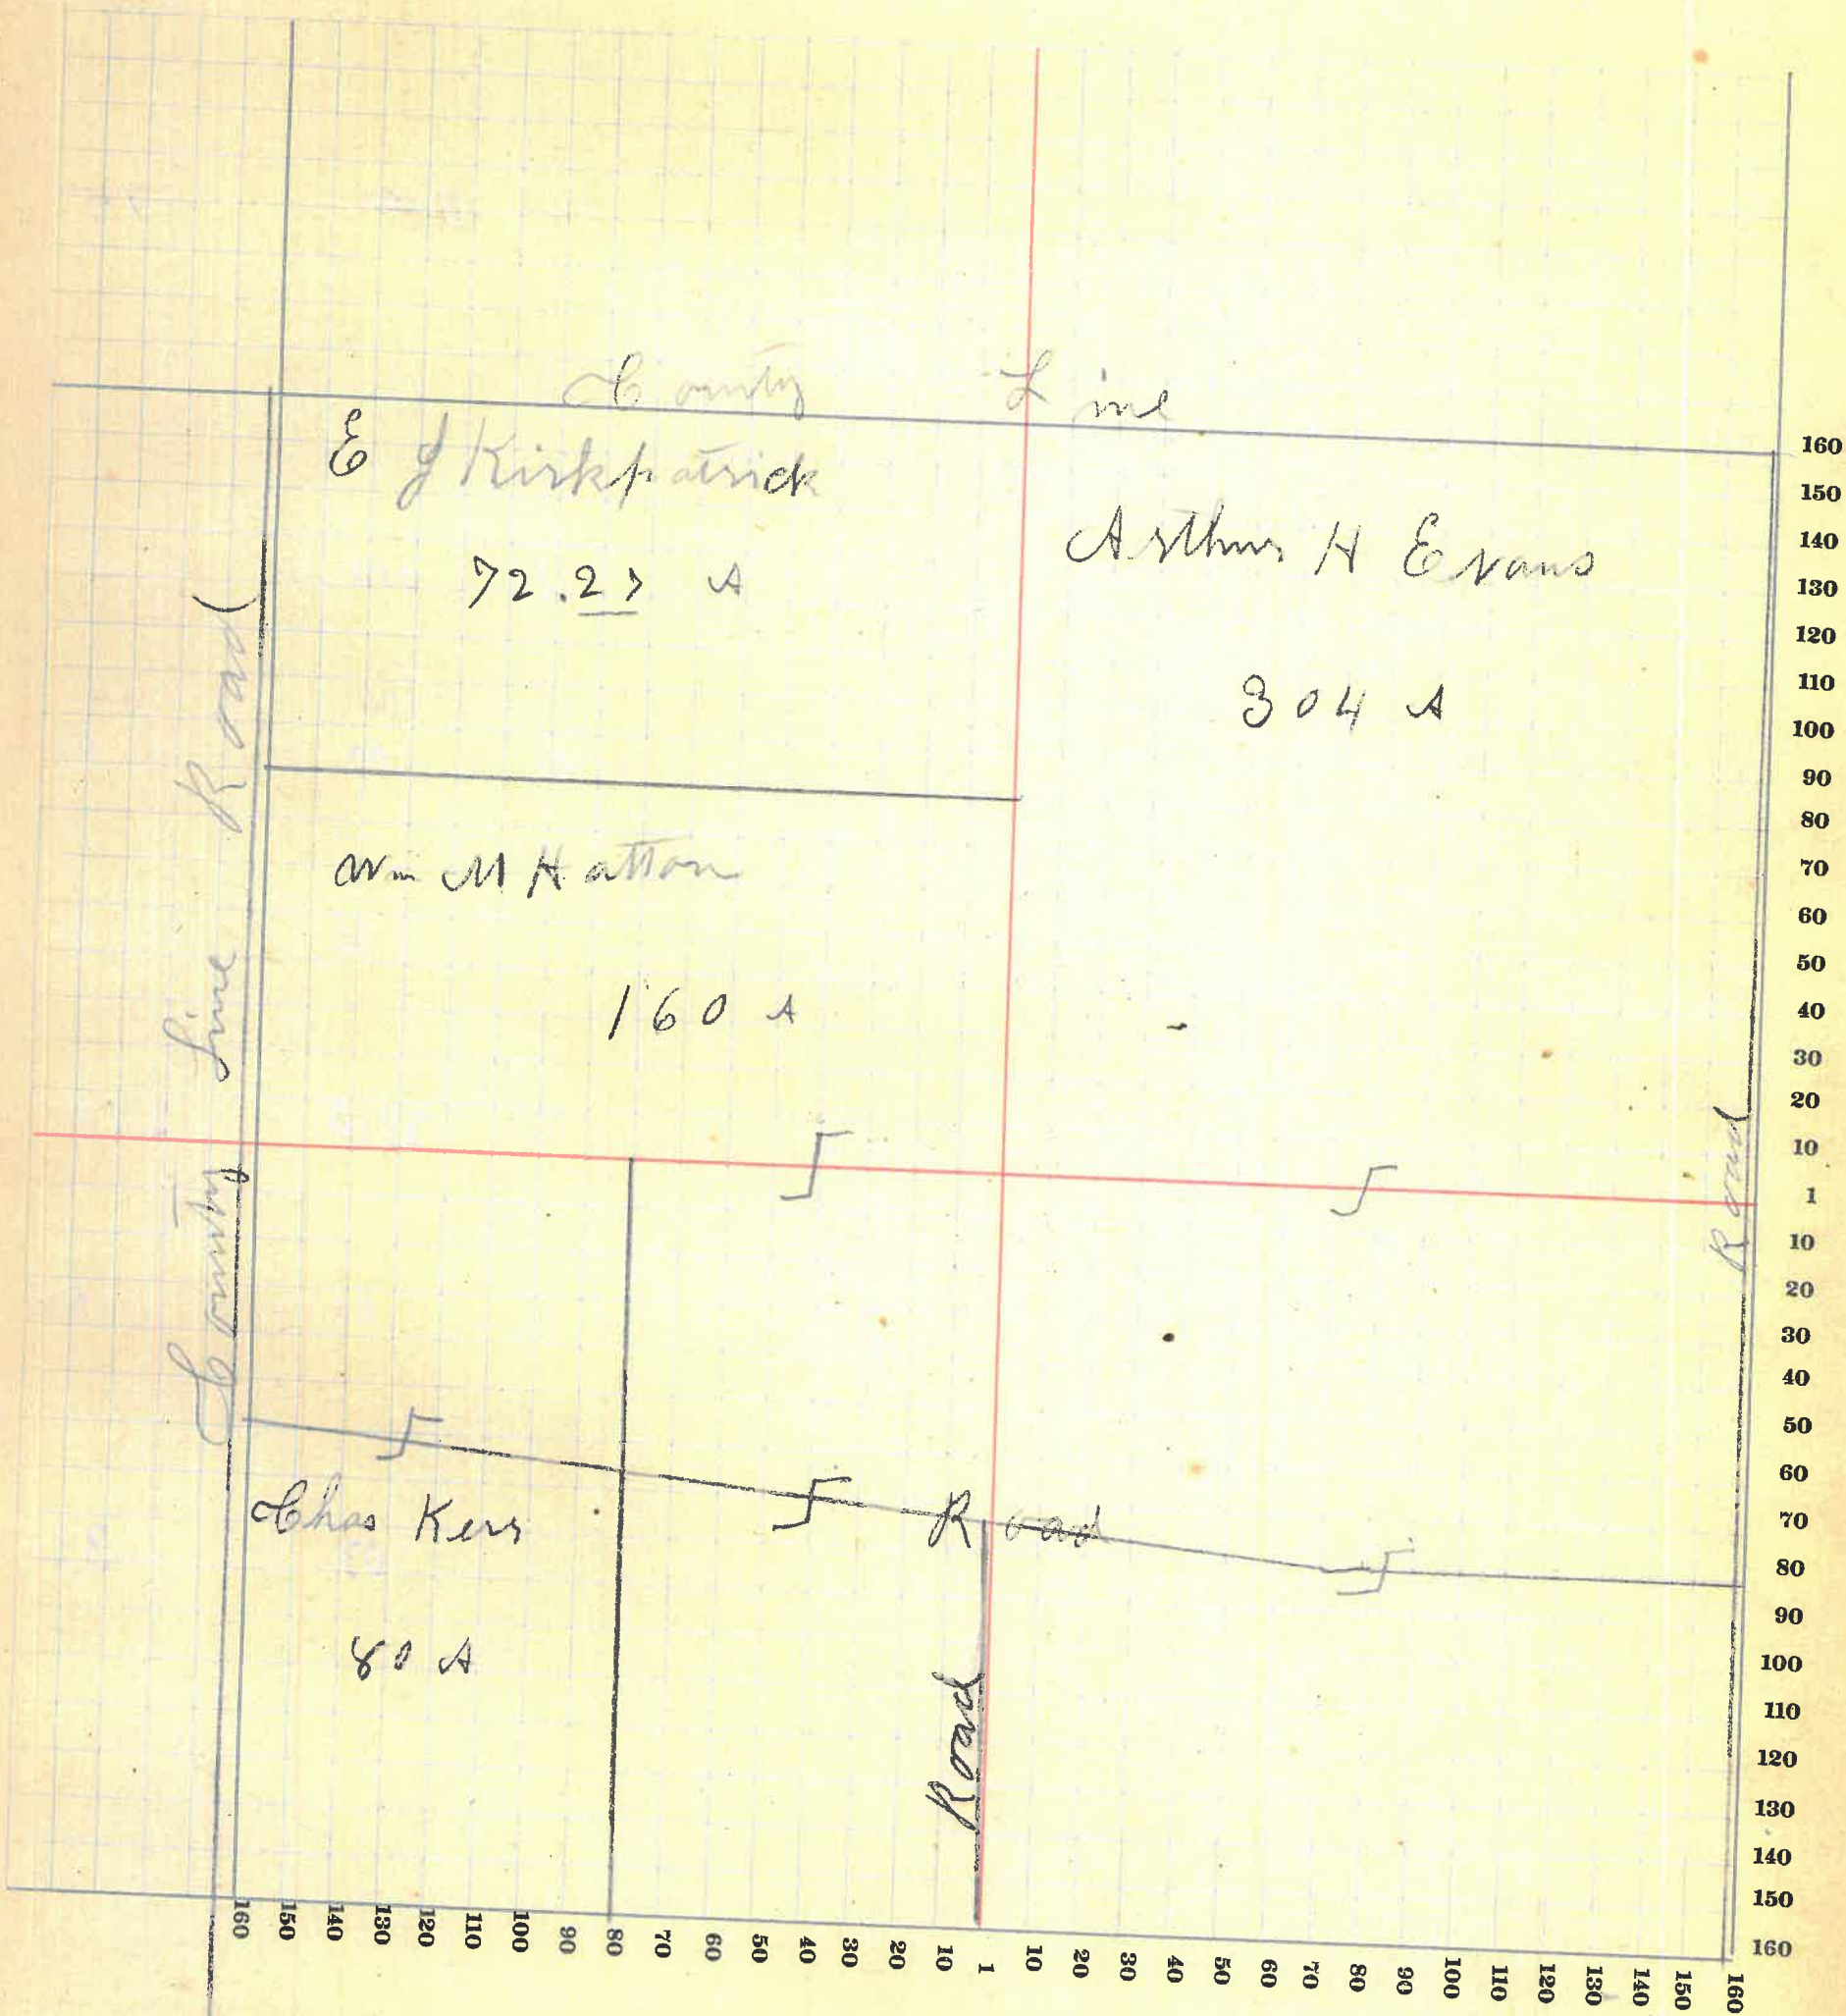 County Line
E J Kirkpatrick
72.27 A
Arthur H Evans
304 A
Wm M Hatton
160 A
County Line Road
Road
Chas Kerr
80 A
Road
Road
160
150
140
130
120
110
100
90
80
70
60
50
40
30
20
10
1
10
20
30
40
50
60
70
80
90
100
110
120
130
140
150
160
160 150 140 130 120 110 100 90 80 70 60 50 40 30 20 10 1 10 20 30 40 50 60 70 80 90 100 110 120 130 140 150 160